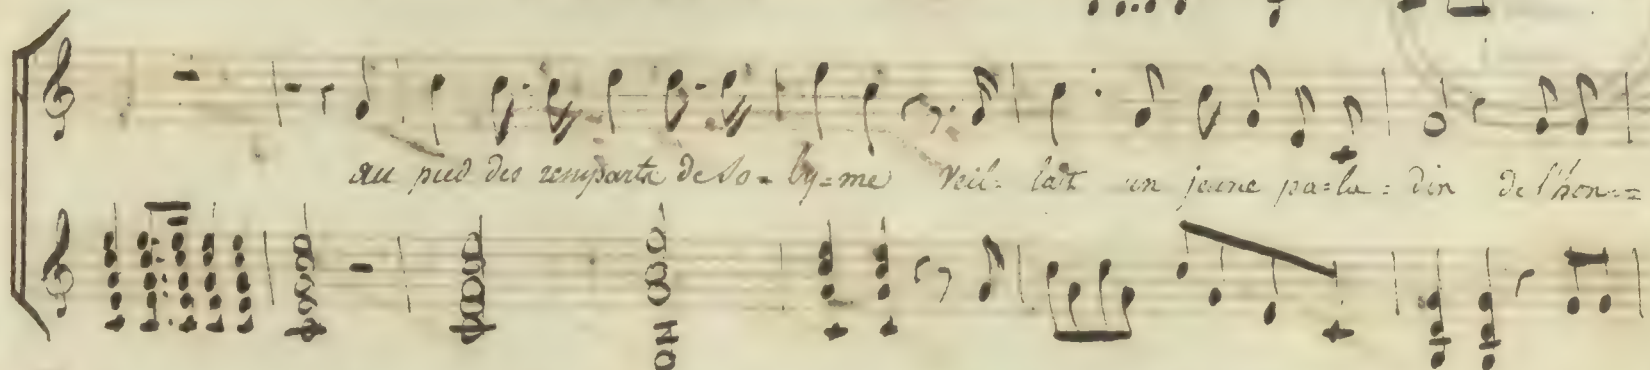 au pied des remparts de So=ly=me Veil= lait un jeune pa=la=din de l'hon=